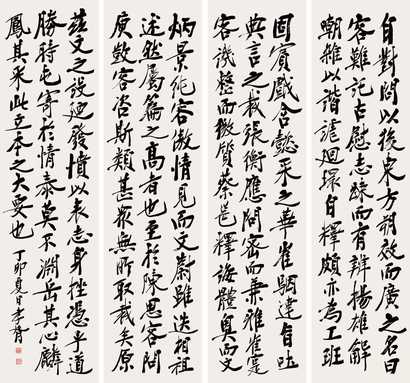 自對問以後東方朔效而廣之名曰
客難託古慰志疎而有辨揚雄解
嘲雜以諧謔迴環自釋頗亦為工班
固賓戲含懿采之華崔駰達旨吐
典言之裁張衡應間密而兼雅崔寔
客譏整而微質蔡邕釋誨體奥而文
炳景純客傲情見而文蔚雖迭相祖
述然屬篇之高者也至於陳思客問
庾敳客咨斯類甚眾無所取裁矣原
茲文之設迺發憤以表志身挫憑乎道
勝時屯寄於情泰莫不淵岳其心麟
鳳其采此立本之大要也 丁卯夏日孝胥